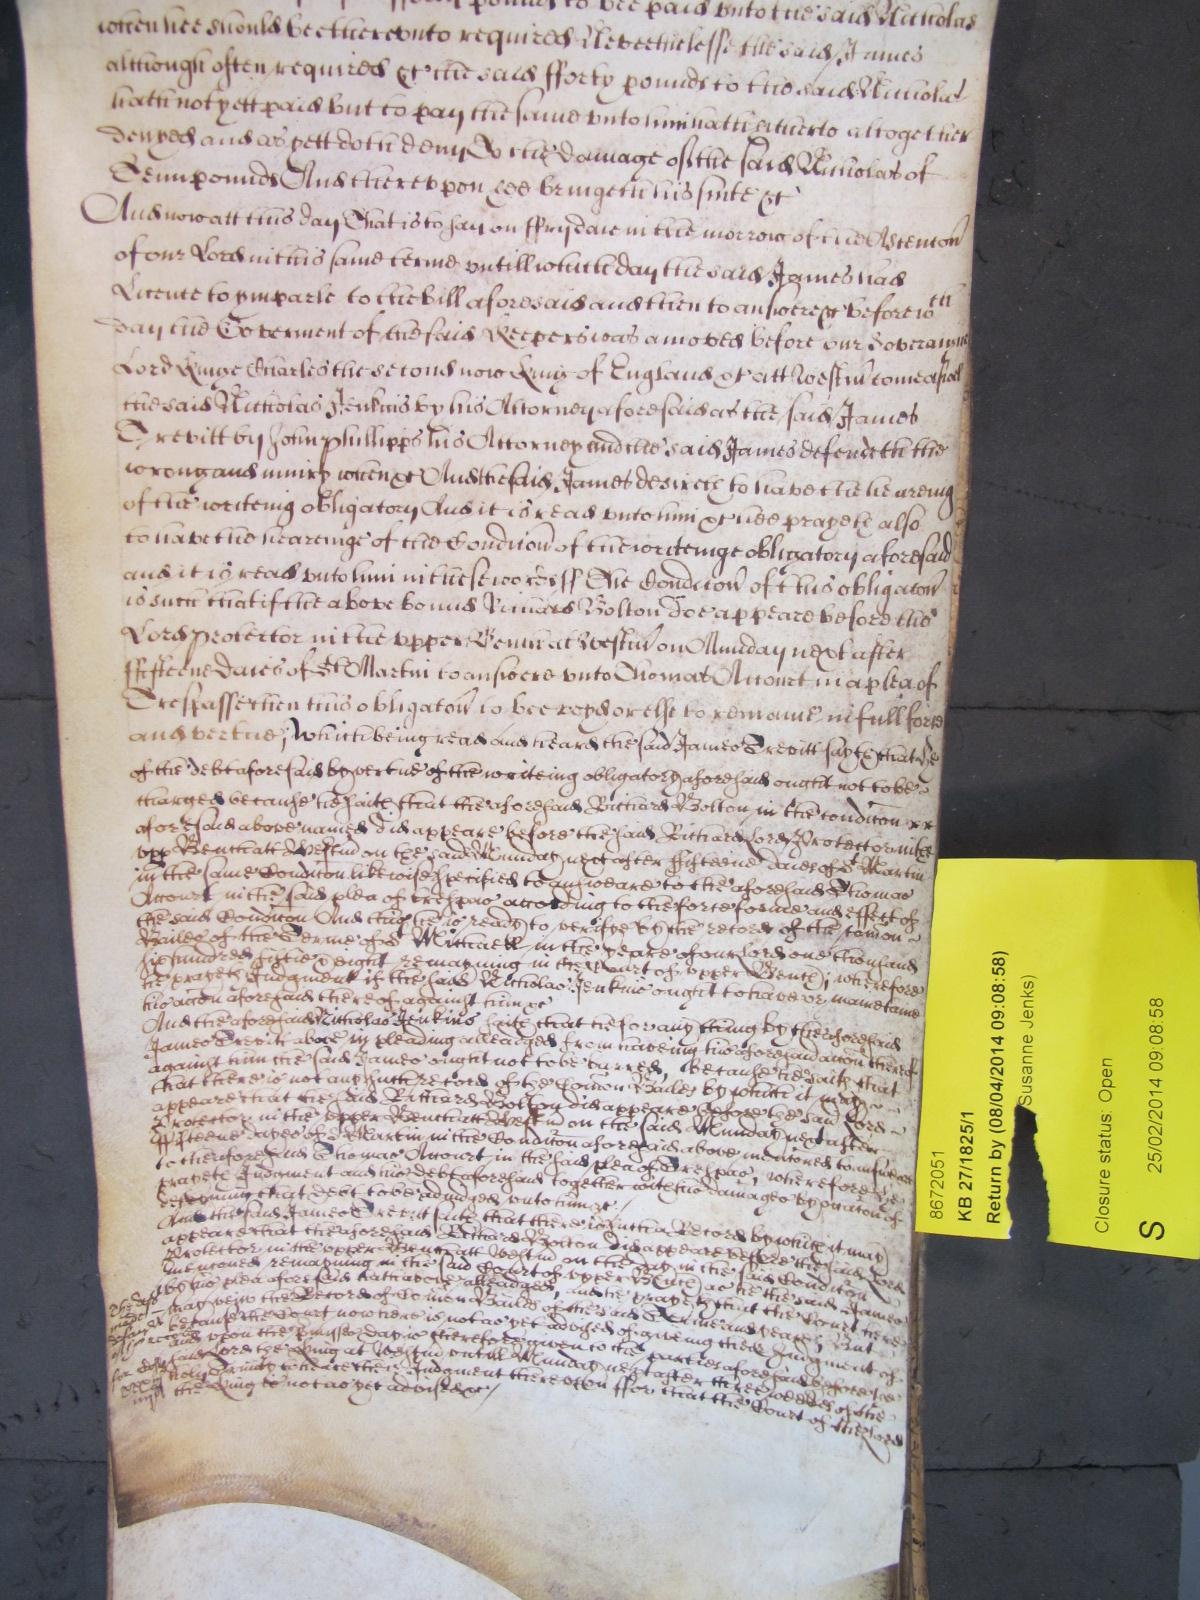 pounds to bee paid unto the said Nicholas
when hee should bee thereunto required Neverthelesse the said James
although often required &c the said fforty pounds to the said Nicholas
hath not yett paid but to pay the same unto him hath hitherto altogether
denyed and as yett doth deny To the Damage of the said Nicholas of
Tenn pounds And thereupon hee bringeth his suite &c
And now att this day That is to say on ffryday in the morrow of the Ascention
of our Lord in this same terme untill which day the said James had
Licence to imparle to the bill aforesaid and then to answere &c before wch
day the Goverment of the said Keepers was amoved before our Soveraigne
Lord Kinge Charles the second now King of England &c att Westm come aswell
the said Nicholas Jenkins by his Attorney aforesaid as the said James
Trevitt by John Phillipps his Attorney and the said James defendeth the
wrong and iniury when &c And the said James desireth to have the heareing
of the writeing obligatory And it is read unto him &c hee prayeth also
to have the heareinge of the Condicon of the writeinge obligatory aforesaid
and it is read unto him in these words ss The Condicon of this obligacon
is such that if the above bound Richard Bolton doe appeare before the
Lord Protector in the upper Bench at Westm on Munday next after
ffifteene daies of St Martin to answere unto Thomas Accourt in a plea of
Trespasse then this obligacon to bee voyd or else to remaine in full force
and vertue; Which being read and heard the said James Trevitt sayth that he
of the debt aforesaid by vertue of the writeing obligatory aforesaid ought not to be
charged because he saith that the aforesaid Richard Bolton in the condicon
aforesaid above named did appeare before the said Richard Lord Protector in the
upp Bench att Westm on the said Munday next after ffifteene daies of St Martin
in the same Condicon likewise specified to answeare to the aforesaid Thomas
Accourt in the said plea of trespas according to the force forme and effect of
the said Condicon And this he is ready to verifye by the record of the comon
Bailes of the Terme of St Michaell in the yeare of our Lord one thousand
six hundred fiftie & eight remayning in the Court of upper Bench; wherefore
he prayeth Judgment if the said Nicholas Jenkins ought to have or mainetaine
his accon aforesaid thereof against him &c
And the aforesaid Nicholas Jenkins saith that he for any thing by the aforesaid
James Trevitt above in pleading alleadged from haveing his aforesaid accon thereof
against him the said James ought not to be barred, Because he saith that
that there is not any such record of the Comon Bailes by which it may
appeare that the said Richard Bolton did appeare before the said Lord
Protector in the upper Bench att Westm on the said Munday next after
ffifteene dayes of St Martin in the Condicon aforesaid above mencioned to answere
to the aforesaid Thomas Accourt in the said plea of Trespas, wherefore he
prayeth Judgment and his debt aforesaid together with his damages by occacon of
deteyning that debt to be adiudged unto him &c /
And the said James Trevitt saith that there is such a Record by which it may
appeare that the aforesaid Richard Bolton did appeare before the said Lord
Protector in the upper Bench att Westm on the day in the said Condicon
mencioned remayning in the said Court of upper Bench as he the said James
by his plea aforesaid hath above alleadged, and he prayeth that the Court here
may veiw the Record of Comon Bailes of the said Terme and yeare; But
because the Court now here is not as yet advised of giveing their Judgment of
and upon the Premisses day is therefore given to the parties aforesaid before the
said Lord the King at Westm untill Munday next after three weekes of the
holy Trinity to heare their Judgment thereupon ffor that the Court of the Lord
the King is not as yet advised &c /
8672051
KB 27/1825/1
Return by (08/04/2014 09:08:58)
Susanne Jenks)
Closure status: Open
S
25/02/2014 09:08:58